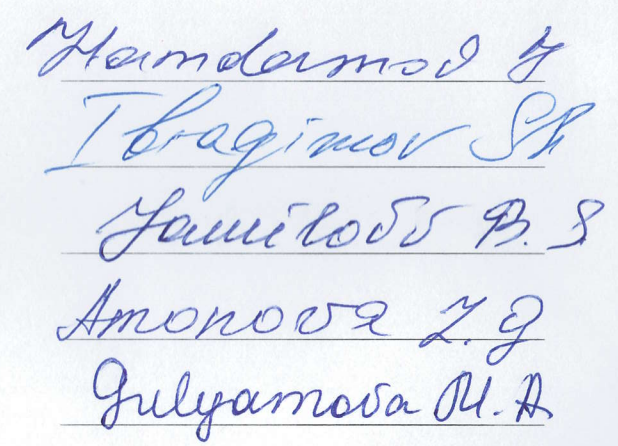 Hamdamov Y
Ibragimov Sh
Jamilova B. S
Amonova Z. G
Gulyamova M. A